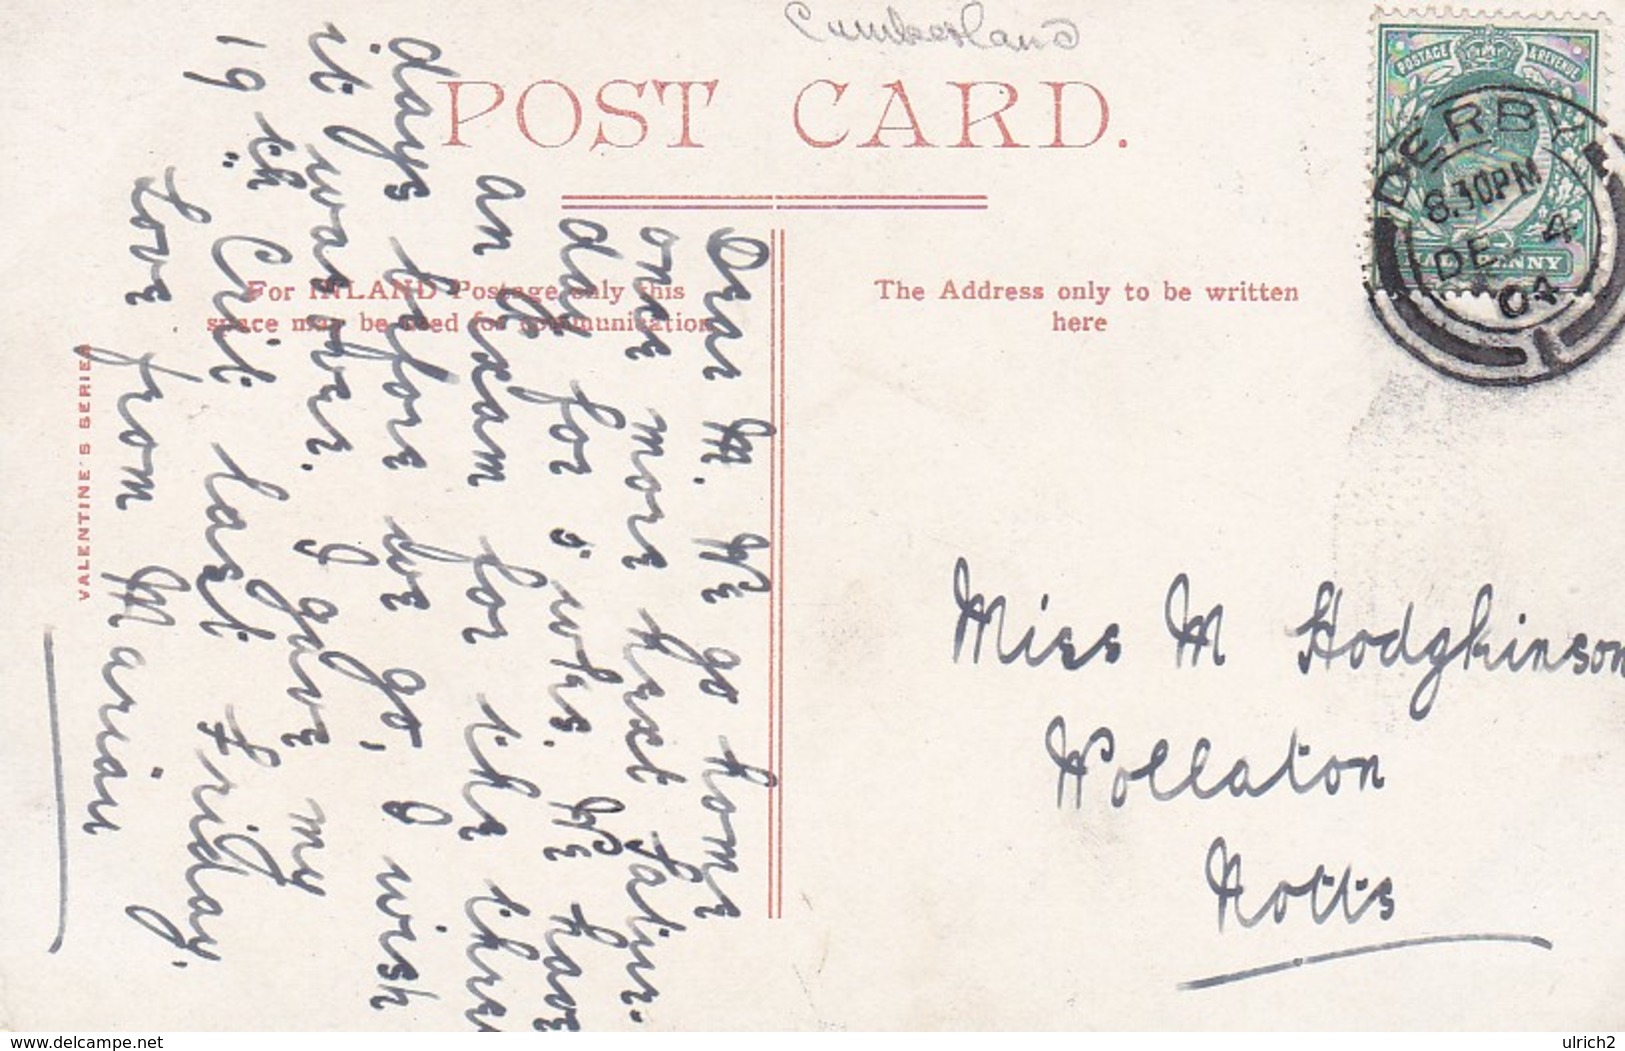 Cumberland
POST CARD.
POSTAGE & REVENUE
HALFPENNY
DERBY
8.30PM
DE 4
04
For INLAND Postage only this
space may be used for communication
The Address only to be written
here
VALENTINE'S SERIES
Dear M. We go home
one more next Satur-
day for 5 wks. We have
an Exam for the three
days before we go, I wish
it was over. I gave my
19th Crit last Friday.
Love from Marian
Miss M Hodgkinson
Wollaton
Notts
www.delcampe.net
ulrich2